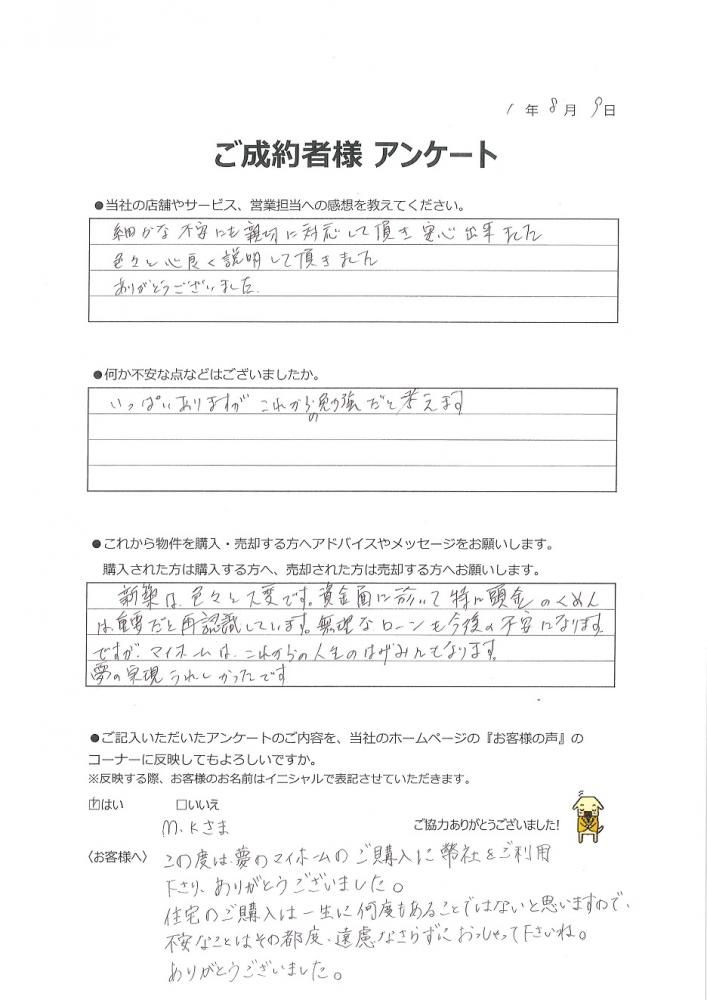 1年8月9日
ご成約者様 アンケート
●当社の店舗やサービス、営業担当への感想を教えてください。
細かな不安にも親切に対応して頂き安心出来ました
色々と心良く説明して頂きました
ありがとうございました.
●何か不安な点などはございましたか。
いっぱいありますが これからの勉強だと考えます
●これから物件を購入・売却する方へアドバイスやメッセージをお願いします。
購入された方は購入する方へ、売却された方は売却する方へお願いします。
新築は、色々と大変です。資金面に於いて特に頭金のくめん
は重要だと再認識しています。無理なローンも今後の不安になります
ですが、マイホームは、これからの人生のはげみにもなります。
夢の実現うれしかったです
●ご記入いただいたアンケートのご内容を、当社のホームページの『お客様の声』の
コーナーに反映してもよろしいですか。
※反映する際、お客様のお名前はイニシャルで表記させていただきます。
☑はい □いいえ
M.Kさま
ご協力ありがとうございました!
〈お客様へ〉 この度は、夢のマイホームのご購入に弊社をご利用
下さり、ありがとうございました。
住宅のご購入は一生に何度もあることではないと思いますので、
不安なことはその都度、遠慮なさらずにおっしゃって下さいね。
ありがとうございました。